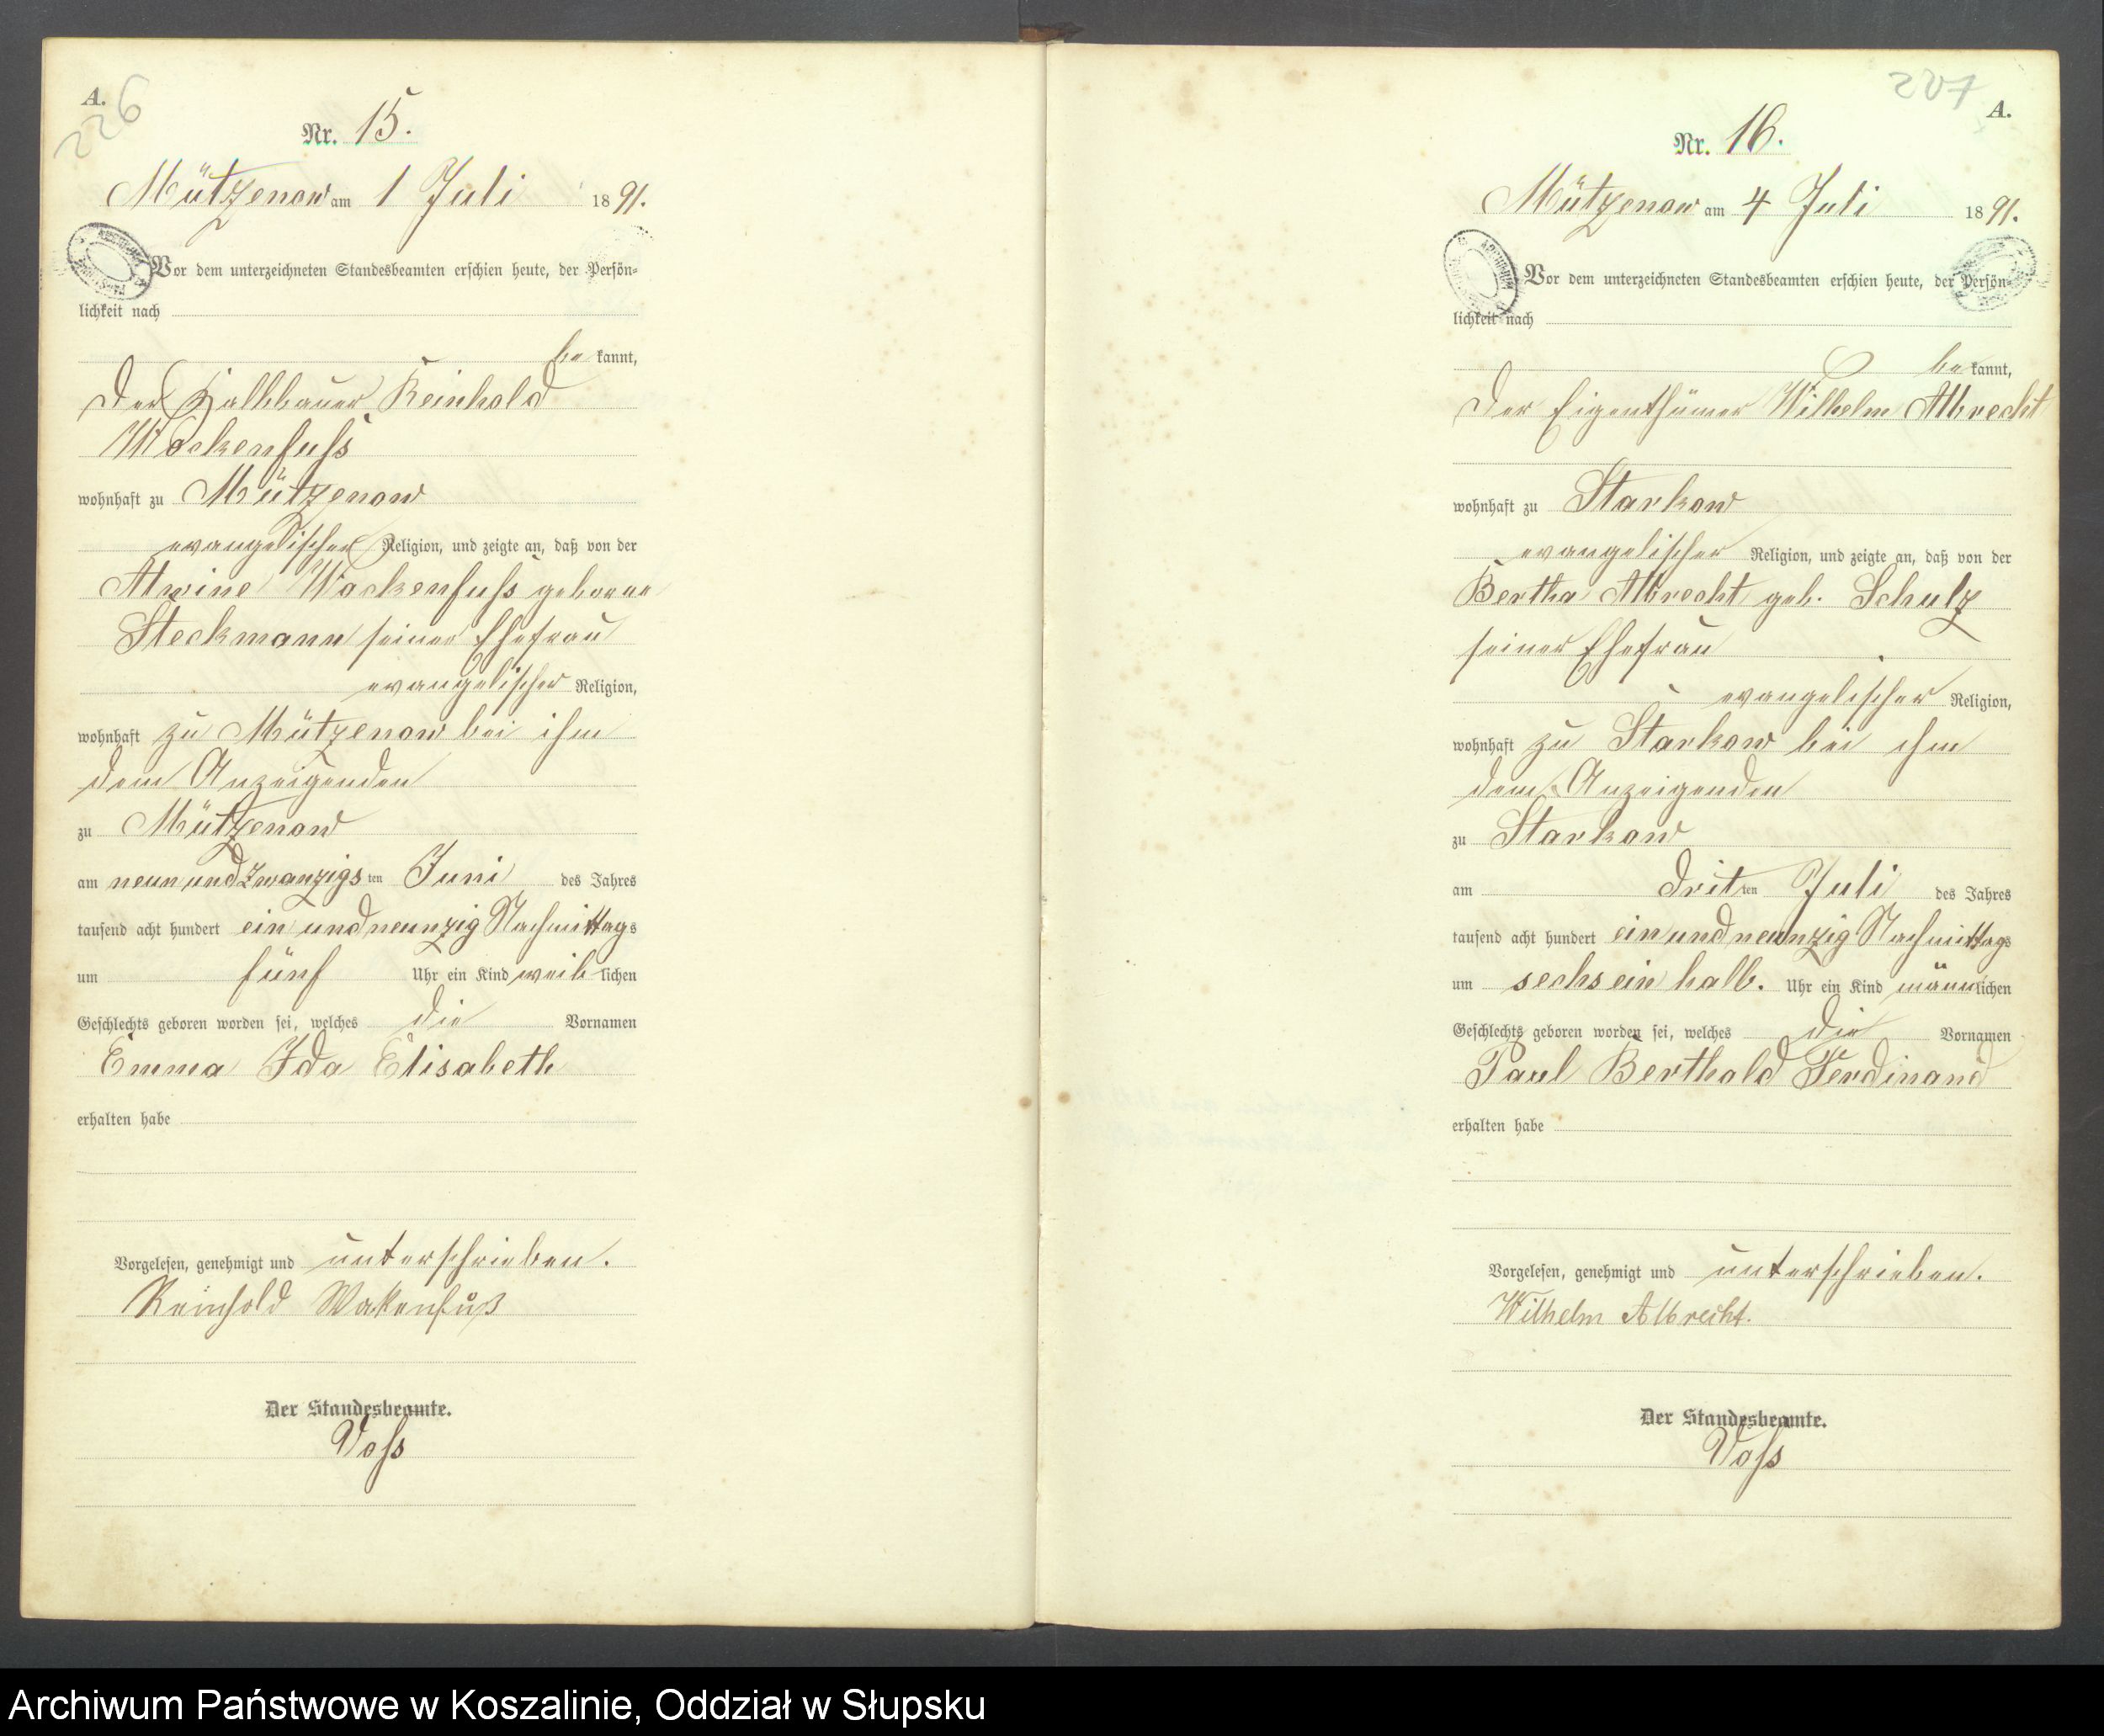 A.
226
Nr. 15.
Mützenow am 1 Juli 1891.
Vor dem unterzeichneten Standesbeamten erschien heute, der Persön-
lichkeit nach
be kannt,
der Halbbauer Reinhold
Wockenfuß
wohnhaft zu Mützenow
evangelischer Religion, und zeigte an, daß von der
Alwine Wockenfuß geborne
Steckmann seiner Ehefrau
evangelischer Religion,
wohnhaft zu Mützenow bei ihm
dem Anzeigenden
zu Mützenow
am neunundzwanzigs ten Juni des Jahres
tausend acht hundert ein und neunzig Nachmittags
um fünf Uhr ein Kind weib lichen
Geschlechts geboren worden sei, welches die Vornamen
Emma Ida Elisabeth
erhalten habe
Vorgelesen, genehmigt und unterschrieben.
Reinhold Wakenfuß
Der Standesbeamte.
Voß
207
A.
Nr. 16.
Mützenow am 4 Juli 1891.
Vor dem unterzeichneten Standesbeamten erschien heute, der Persön-
lichkeit nach
be kannt,
der Eigenthümer Wilhelm Albrecht
wohnhaft zu Starkow
evangelischer Religion, und zeigte an, daß von der
Bertha Albrecht geb. Schulz
seiner Ehefrau
evangelischer Religion,
wohnhaft zu Starkow bei ihm
dem Anzeigenden
zu Starkow
am drit ten Juli des Jahres
tausend acht hundert ein und neunzig Nachmittags
um sechs ein halb. Uhr ein Kind männlichen
Geschlechts geboren worden sei, welches die Vornamen
Paul Berthold Ferdinand
erhalten habe
Vorgelesen, genehmigt und unterschrieben.
Wilhelm Albrecht.
Der Standesbeamte.
Voß
Archiwum Państwowe w Koszalinie, Oddział w Słupsku